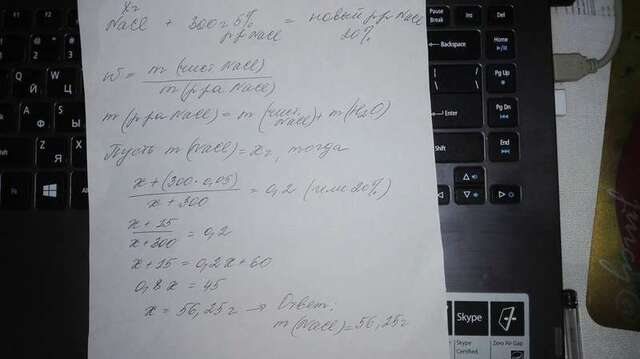 xг
NaCl + 300г 5% = новый р-р NaCl
р-р NaCl 20%
w = m (чист. NaCl)
m (р-ра NaCl)
m (р-ра NaCl) = m (чист. NaCl) + m (H₂O)
Пусть m (NaCl) = xг, тогда
x + (300 · 0,05)
x + 300
= 0,2 (или 20%)
x + 15
x + 300
= 0,2
x + 15 = 0,2x + 60
0,8x = 45
x = 56,25г → Ответ:
m (NaCl) = 56,25г
Pause
Break
Ins
Del
Backspace
Home
Pg Up
Enter
Pg Dn
Shift
End
Й
Ц
Ф
Я
Alt
Skype
Skype
Certified
Zero Air Gap